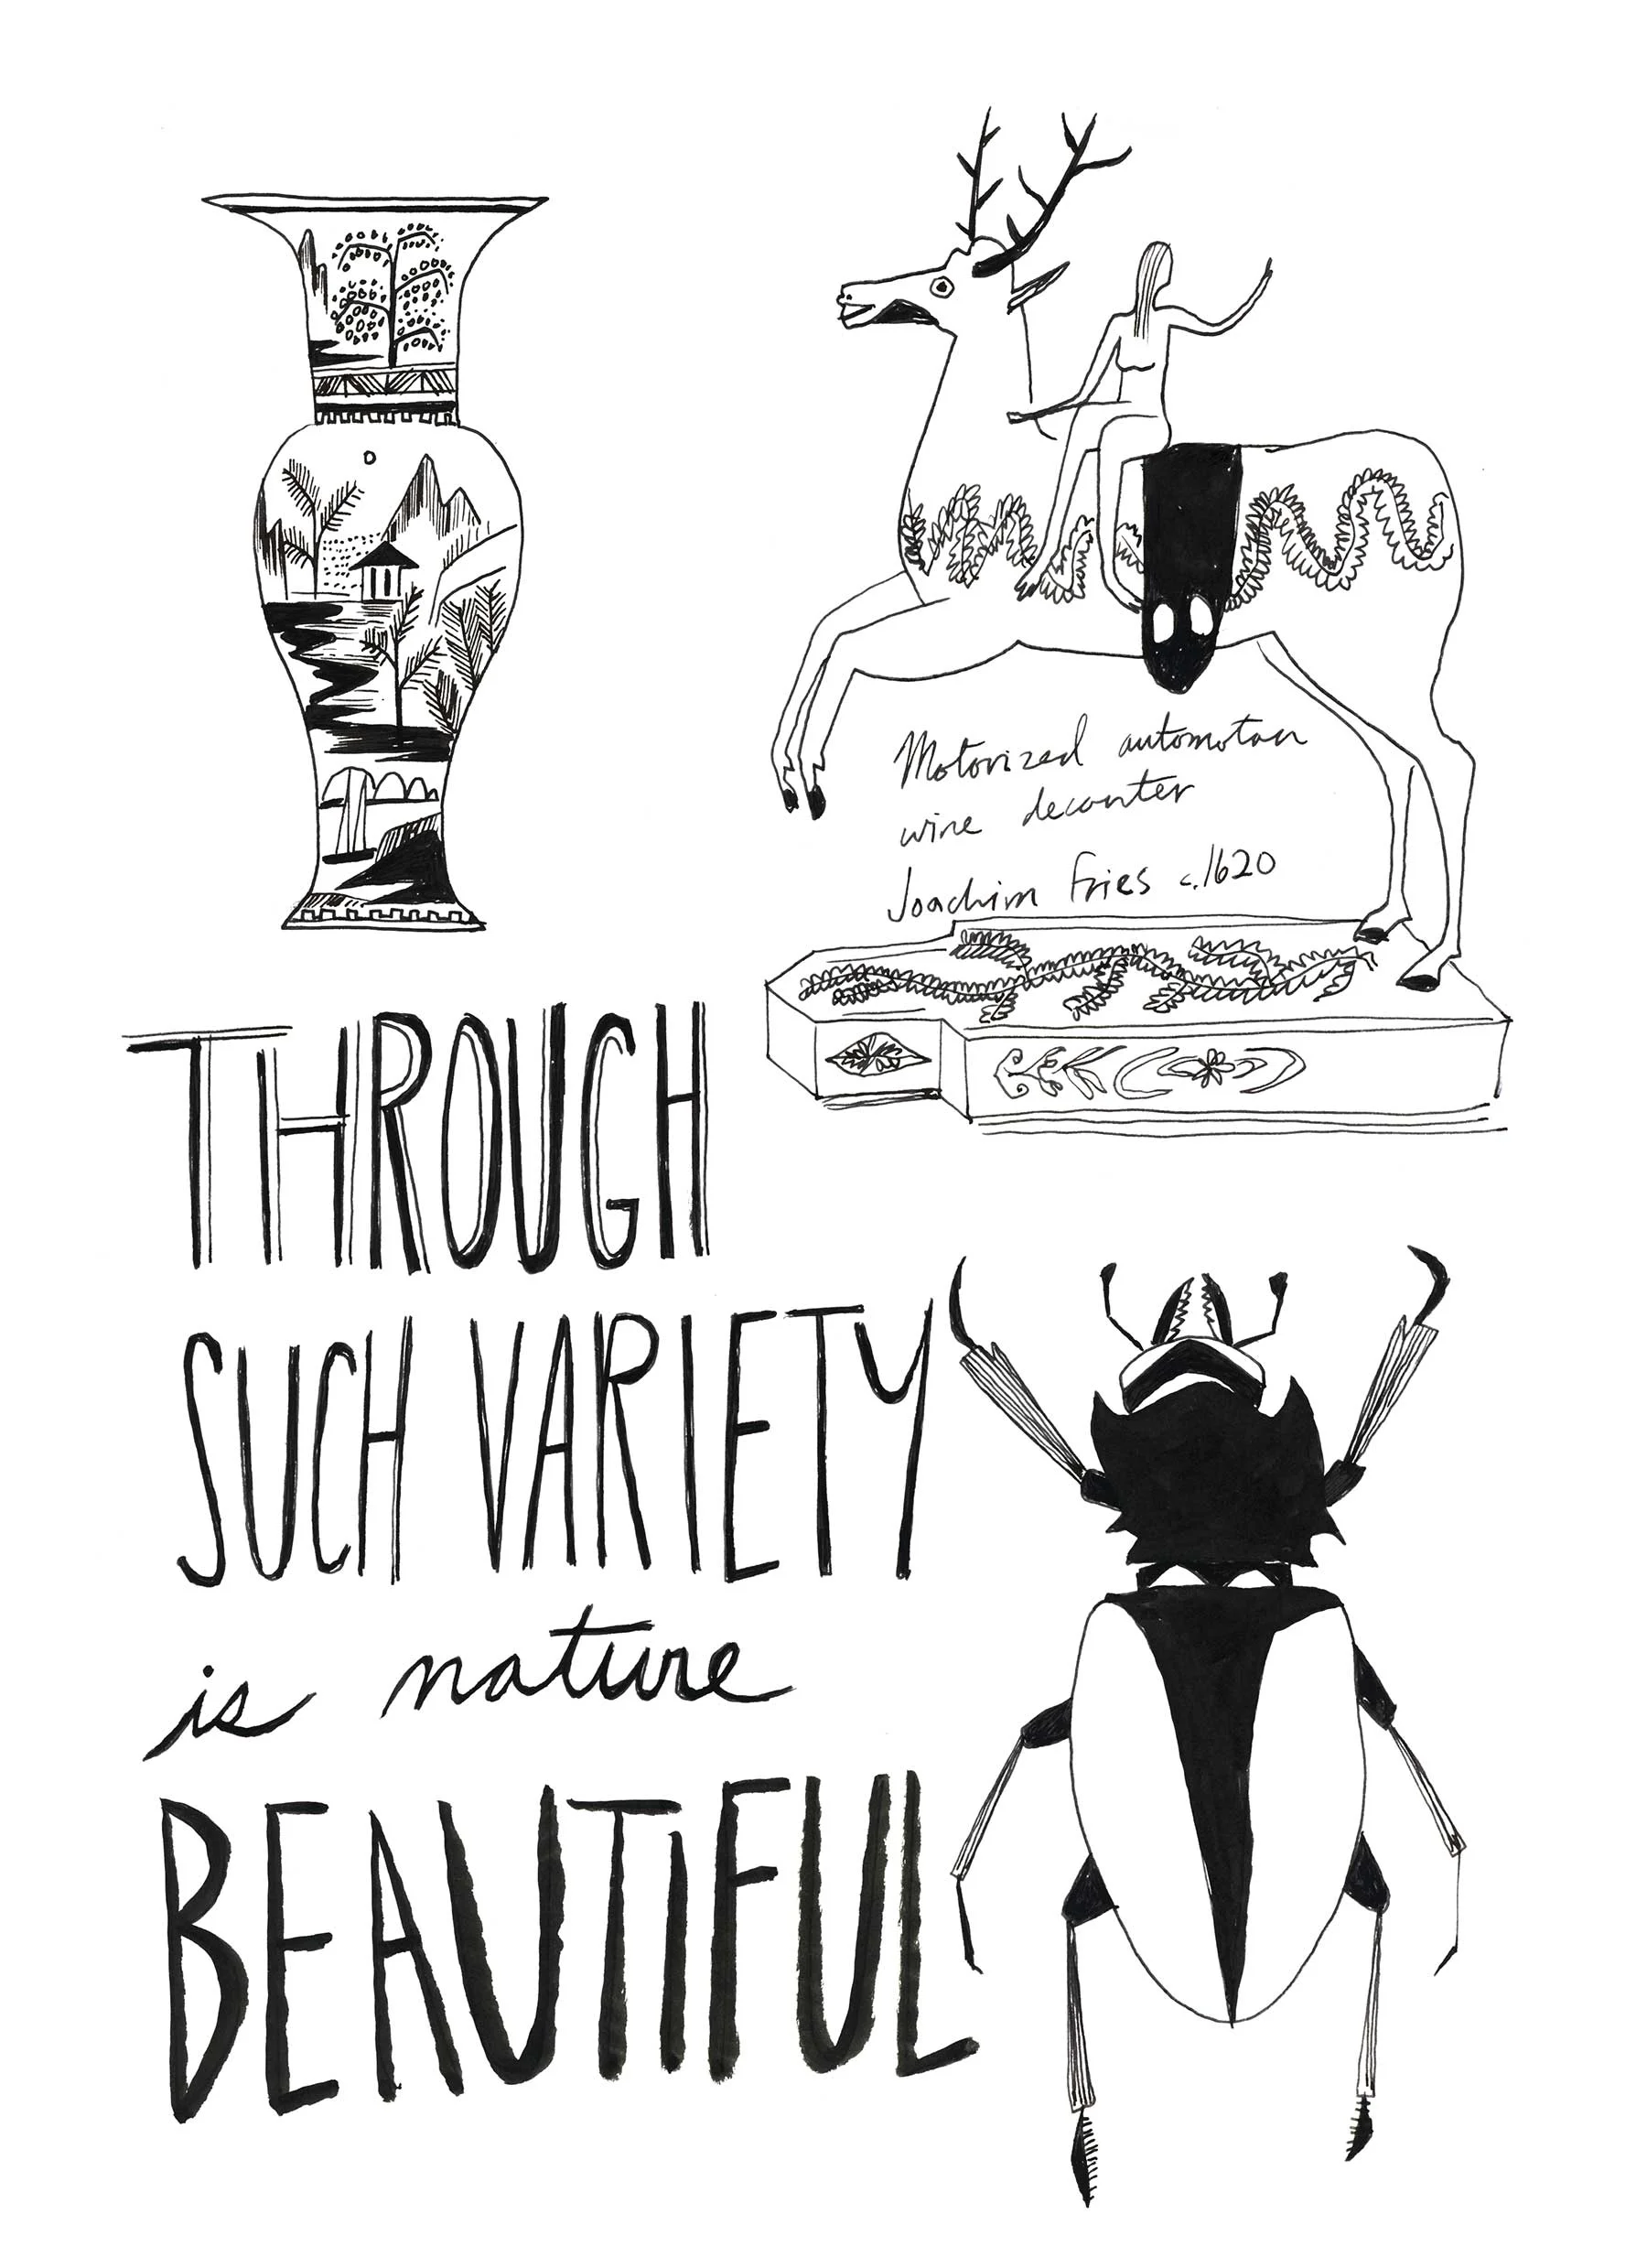 Motorized automotan
wine decanter
Joachim Fries c.1620
THROUGH
SUCH VARIETY
is nature
BEAUTIFUL